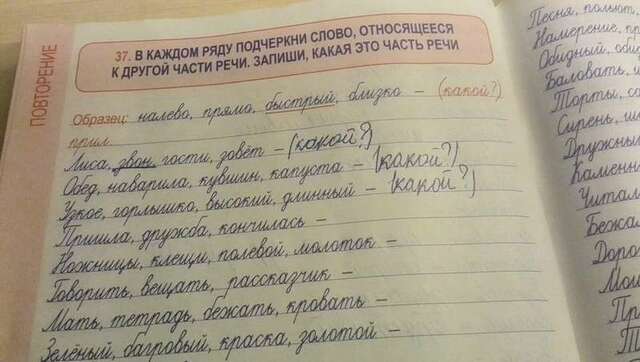 ПОВТОРЕНИЕ
37. В КАЖДОМ РЯДУ ПОДЧЕРКНИ СЛОВО, ОТНОСЯЩЕЕСЯ
К ДРУГОЙ ЧАСТИ РЕЧИ. ЗАПИШИ, КАКАЯ ЭТО ЧАСТЬ РЕЧИ
Образец: налево, прямо, быстрый, близко – (какой?)
прил.
Лиса, звон, гости, зовёт – (какой?)
Обед, наварила, кувшин, капуста – (какой?)
Узкое, горлышко, высокий, длинный – (какой?)
Пришла, дружба, кончилась –
Ножницы, клещи, полевой, молоток –
Говорить, вещать, рассказчик –
Мать, тетрадь, бежать, кровать –
Зелёный, багровый, краска, золотой –
Песня, польют,
Намерение, пр
Обидный, оби
Баловать,
Торты, со
Сирень, ш
Дружны
Каменн
Читал
Бежа
Доро
Мои
Пр
Т